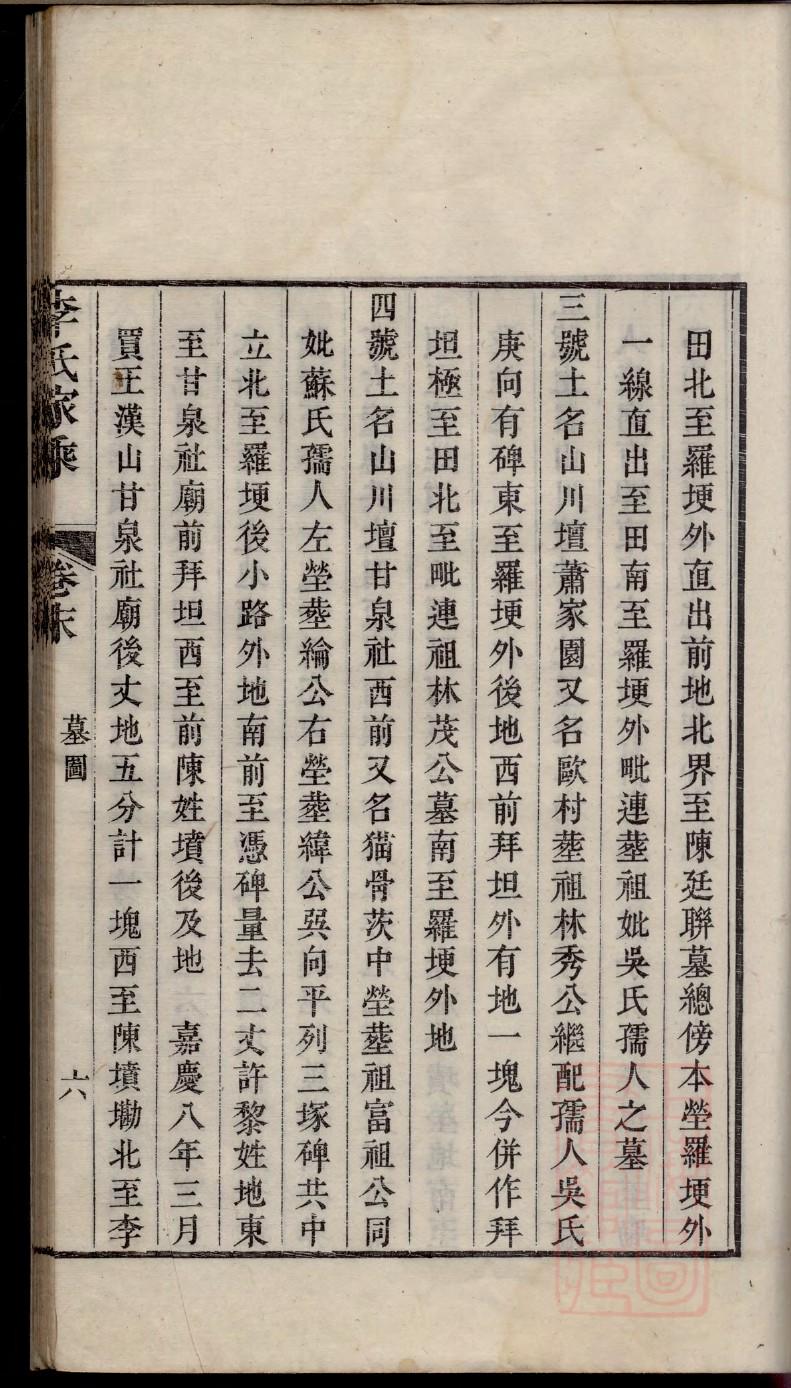 田北至羅埂外直出前地北界至陳廷聯墓總傍本塋羅埂外
一線直出至田南至羅埂外毗連塟祖妣吳氏孺人之墓
三號土名山川壇蕭家園又名歐村塟祖林秀公繼配孺人吳氏
庚向有碑東至羅埂外後地西前拜坦外有地一塊今併作拜
坦極至田北至毗連祖林茂公墓南至羅埂外地
四號土名山川壇甘泉社西前又名猫骨茨中塋塟祖富祖公同
妣蘇氏孺人左塋塟綸公右塋塟緯公㢲向平列三塚碑共中
立北至羅埂後小路外地南前至憑碑量去二丈許黎姓地東
至甘泉社廟前拜坦西至前陳姓墳後及地　嘉慶八年三月
買王漢山甘泉社廟後丈地五分計一塊西至陳墳墈北至李
李氏家乘　卷末　墓圖　六